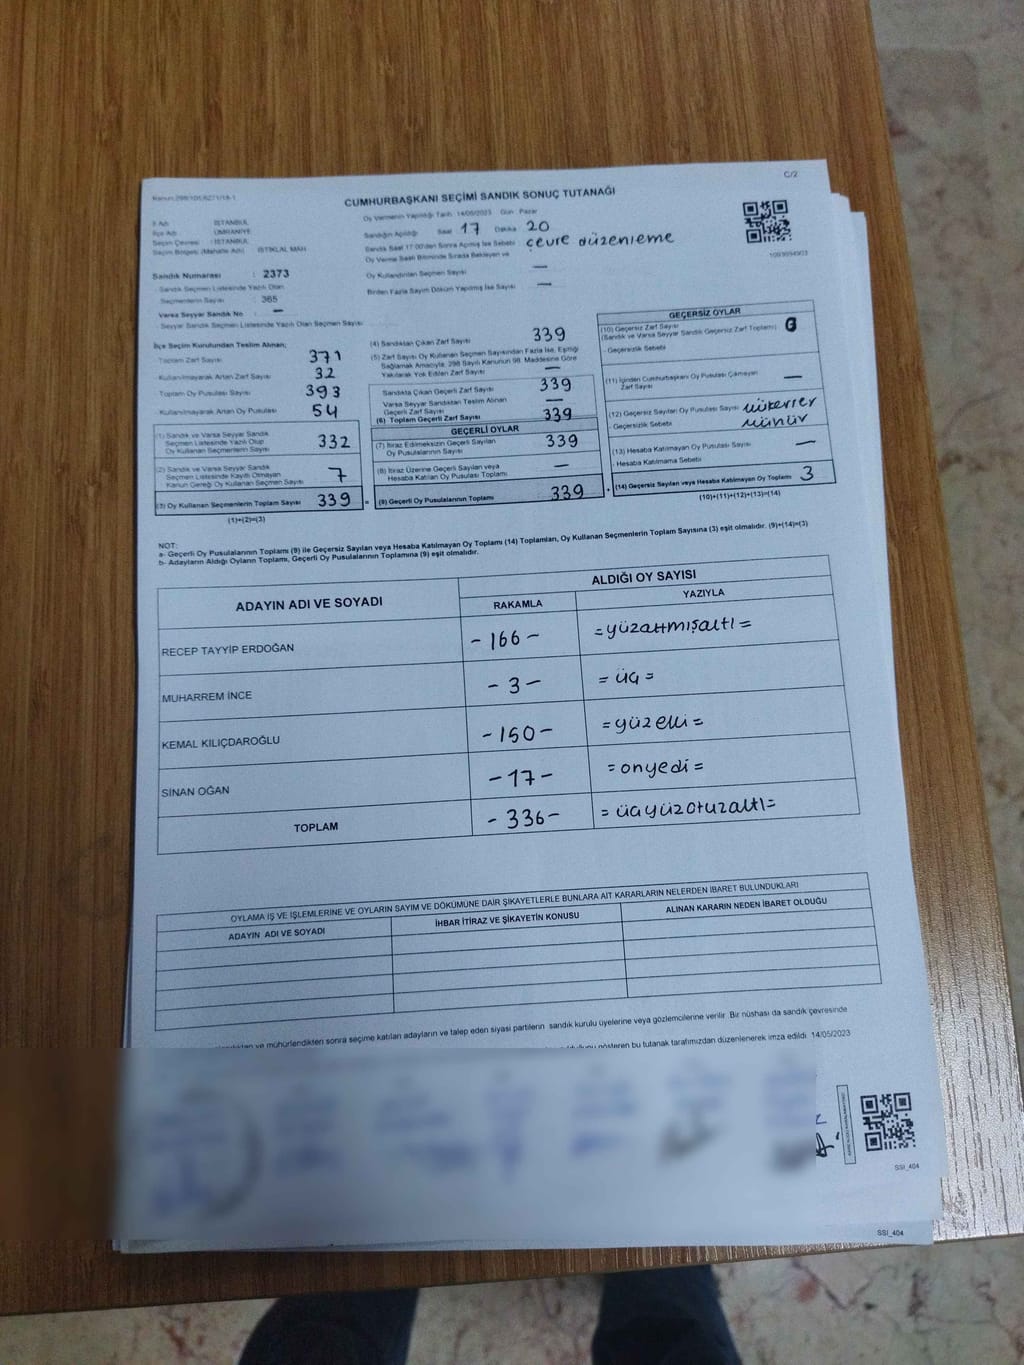 C/2
Kanun:298/101,6271/18-1
CUMHURBAŞKANI SEÇİMİ SANDIK SONUÇ TUTANAĞI
İl Adı : İSTANBUL
İlçe Adı : ÜMRANİYE
Seçim Çevresi : İSTANBUL
Seçim Bölgesi (Mahalle Adı) : İSTİKLAL MAH
Sandık Numarası : 2373
- Sandık Seçmen Listesinde Yazılı Olan
Seçmenlerin Sayısı : 365
Varsa Seyyar Sandık No : —
- Seyyar Sandık Seçmen Listesinde Yazılı Olan Seçmen Sayısı
Oy Vermenin Yapıldığı Tarih: 14/05/2023 Gün: Pazar
Sandığın Açıldığı Saat 17 Dakika 20
Sandık Saat 17:00'den Sonra Açılmış İse Sebebi çevre düzenleme
Oy Verme Saati Bitiminde Sırada Bekleyen ve
Oy Kullandırılan Seçmen Sayısı —
Birden Fazla Sayım Döküm Yapılmış İse Sayısı —
İlçe Seçim Kurulundan Teslim Alınan;
Toplam Zarf Sayısı 371
-Kullanılmayarak Artan Zarf Sayısı 32
Toplam Oy Pusulası Sayısı 393
-Kullanılmayarak Artan Oy Pusulası 54
(1) Sandık ve Varsa Seyyar Sandık
Seçmen Listesinde Yazılı Olup
Oy Kullanan Seçmenlerin Sayısı 332
(2) Sandık ve Varsa Seyyar Sandık
Seçmen Listesinde Kayıtlı Olmayan
Kanun Gereği Oy Kullanan Seçmen Sayısı 7
(3) Oy Kullanan Seçmenlerin Toplam Sayısı 339 =
(1)+(2)=(3)
(4) Sandıktan Çıkan Zarf Sayısı 339
(5) Zarf Sayısı Oy Kullanan Seçmen Sayısından Fazla İse, Eşitliği
Sağlamak Amacıyla, 298 Sayılı Kanunun 98. Maddesine Göre
Yakılarak Yok Edilen Zarf Sayısı —
Sandıkta Çıkan Geçerli Zarf Sayısı 339
Varsa Seyyar Sandıktan Teslim Alınan
Geçerli Zarf Sayısı —
(6) Toplam Geçerli Zarf Sayısı 339
GEÇERLİ OYLAR
(7) İtiraz Edilmeksizin Geçerli Sayılan
Oy Pusulalarının Sayısı 339
(8) İtiraz Üzerine Geçerli Sayılan veya
Hesaba Katılan Oy Pusulası Toplamı —
(9) Geçerli Oy Pusulalarının Toplamı 339 +
GEÇERSİZ OYLAR
(10) Geçersiz Zarf Sayısı
(Sandık ve Varsa Seyyar Sandık Geçersiz Zarf Toplamı)
- Geçersizlik Sebebi
(11) İçinden Cumhurbaşkanı Oy Pusulası Çıkmayan
Zarf Sayısı —
(12) Geçersiz Sayılan Oy Pusulası Sayısı
- Geçersizlik Sebebi
(13) Hesaba Katılmayan Oy Pusulası Sayısı —
- Hesaba Katılmama Sebebi
(14) Geçersiz Sayılan veya Hesaba Katılmayan Oy Toplamı 3
(10)+(11)+(12)+(13)=(14)
NOT:
a- Geçerli Oy Pusulalarının Toplamı (9) ile Geçersiz Sayılan veya Hesaba Katılmayan Oy Toplamı (14) Toplamları, Oy Kullanan Seçmenlerin Toplam Sayısına (3) eşit olmalıdır. (9)+(14)=(3)
b- Adayların Aldığı Oyların Toplamı, Geçerli Oy Pusulalarının Toplamına (9) eşit olmalıdır.
ADAYIN ADI VE SOYADI
ALDIĞI OY SAYISI
RAKAMLA YAZIYLA
RECEP TAYYİP ERDOĞAN -166- =yüzaltmışaltı=
MUHARREM İNCE -3- =üç=
KEMAL KILIÇDAROĞLU -150- =yüzelli=
SİNAN OĞAN -17- =onyedi=
TOPLAM -336- =üçyüzotuzaltı=
OYLAMA İŞ VE İŞLEMLERİNE VE OYLARIN SAYIM VE DÖKÜMÜNE DAİR ŞİKAYETLERLE BUNLARA AİT KARARLARIN NELERDEN İBARET BULUNDUKLARI
ADAYIN ADI VE SOYADI İHBAR İTİRAZ VE ŞİKAYETİN KONUSU ALINAN KARARIN NEDEN İBARET OLDUĞU
ve mühürlendikten sonra seçime katılan adayların ve talep eden siyasi partilerin sandık kurulu üyelerine veya gözlemcilerine verilir. Bir nüshası da sandık çevresinde
gösteren bu tutanak tarafımızdan düzenlenerek imza edildi. 14/05/2023
SSI_404
SSI_404